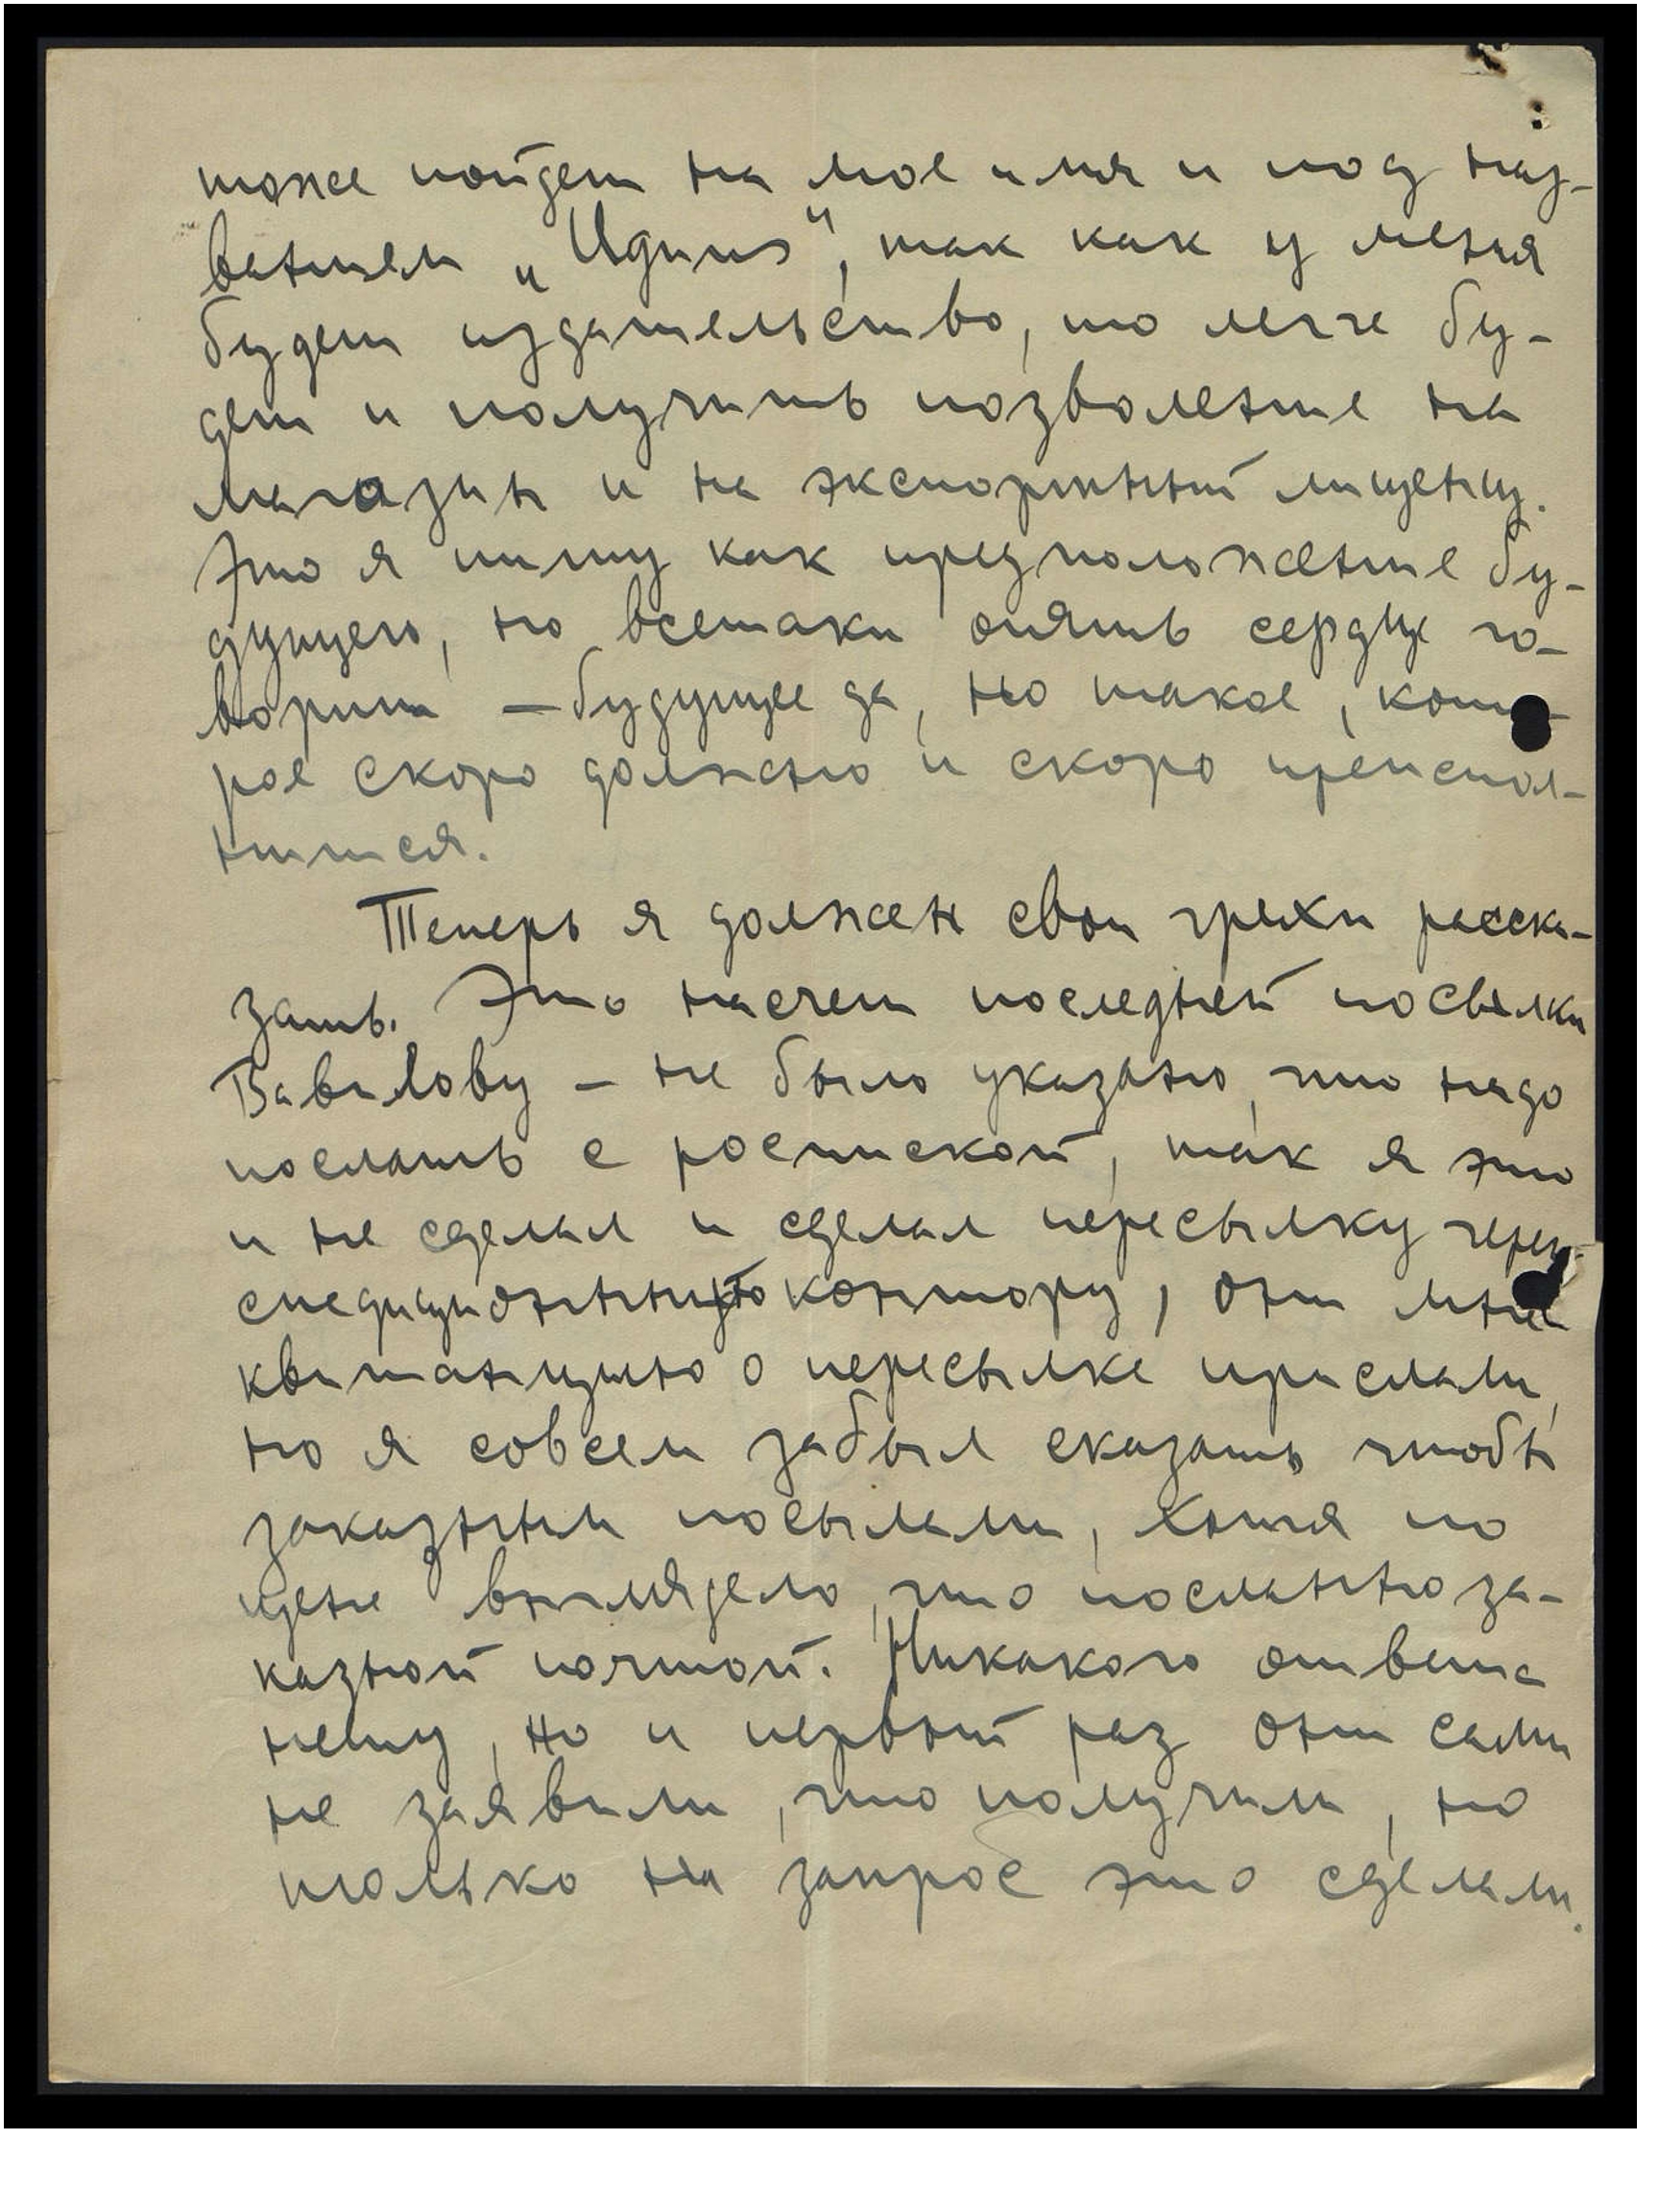 тоже пойдет на мое имя и под наз-
ванием „Идиш“, так как у меня
будет издательство, то легче бу-
дет и получить позволение на
магазин и на экспортный лиценц.
Это я пишу как предположение бу-
дущего, но всетаки опять сердце го-
ворит — будущее да, но такое, кото-
рое скоро должно и скоро преиспол-
нится.
Теперь я должен свои грехи расска-
зать. Это насчет последней посылки
Вавилову – не было указано, что надо
послать с роспиской, так я это
и не сделал и сделал пересылку через
спедиционную контору, они мне
квитанцию о пересылке прислали,
но я совсем забыл сказать чтобы
заказным посылали, хотя по
цене выглядело, что посланно за-
казной почтой. Никакого ответа
нету, но и первый раз они сами
не заявили, что получили, но
только на запрос это сделали.